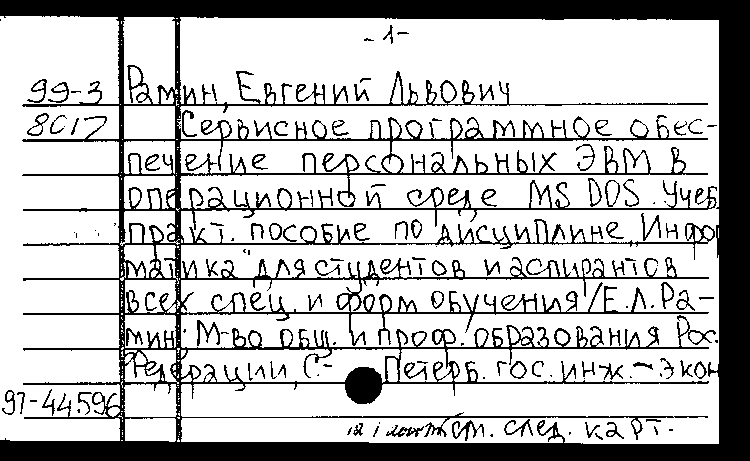 -1-
99-3 Рамин, Евгений Львович
8017 Сервисное программное обес-
печение персональных ЭВМ в
операционной среде MS DOS. Учеб.
практ. пособие по дисциплине „Инфор
матика" для студентов и аспирантов
всех спец. и форм обучения / Е.Л. Ра-
мин; М-во общ. и проф. образования Рос.
Федерации, С.- Петерб. гос. инж.-экон
97-44596
см. след. карт.